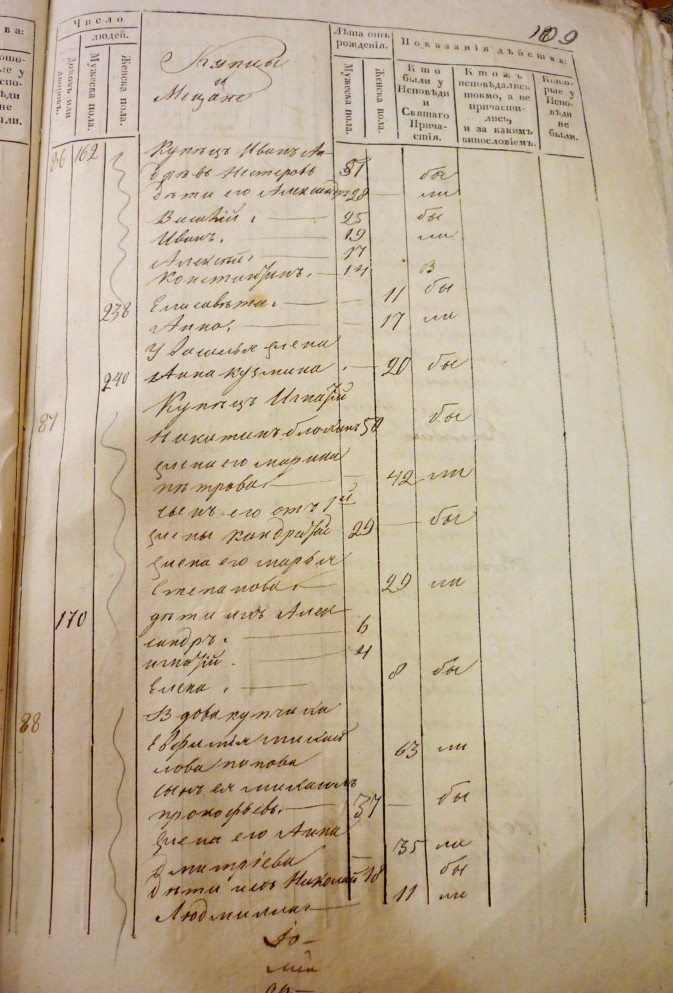 109
ва:
Число
людей.
Домовъ или дворовъ.
Мужеска пола.
Женска пола.
Купцы
и
Мещане
Лѣта отъ
рожденія.
Мужеска пола.
Женска пола.
Показанія дѣйства:
Кто
были у
Исповѣди
и
Святаго
Прича-
стія.
Ктожъ
исповѣдались
токмо, а не
причасти-
лись,
и за какимъ
винословіемъ.
Кото-
рые у
Испо-
вѣди
не
были.
86 162 Купецъ Иванъ
Нестеровъ 51 бы
дѣти его Александръ 28 ли
Василій. 25 бы
Иванъ. 19 ли
Алексѣй. 17
Константинъ. 14
Елисавета. 11 бы
238 Анна. 17 ли
У Василья жена
240 Анна Кузмина. 20 бы
87 Купецъ Игнатій
Никитинъ 58 бы
жена его Марина
Петрова 42 ли
сынъ его отъ 1й
жены Кондратій 29 бы
жена его Марья
Степанова. 29 ли
170 дѣти ихъ Алек
сандръ. 6
Игнатій. 4
Елена. 8 бы
88 Вдова купчиха
Евфимія Михай
лова Попова 63 ли
сынъ ея Михаилъ
Прокофьевъ. 37 бы
жена его Анна
Дмитріева 35 ли
дѣти ихъ Николай 18 бы
Людмилла 11 ли